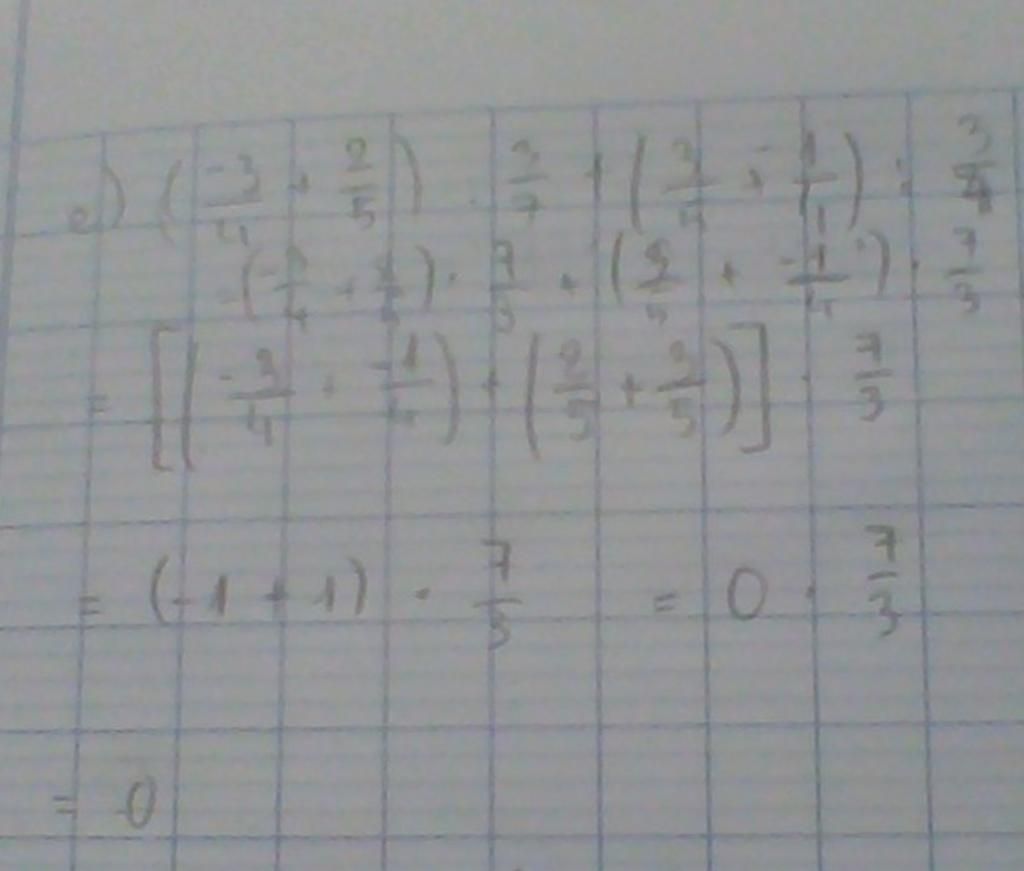 e) (-3/4 + 2/5) : 3/7 + (3/5 + -1/4) : 3/7
= (-3/4 + 2/5) · 7/3 + (3/5 + -1/4) · 7/3
= [(-3/4 + -1/4) + (2/5 + 3/5)] · 7/3
= (-1 + 1) · 7/3 = 0 · 7/3
= 0